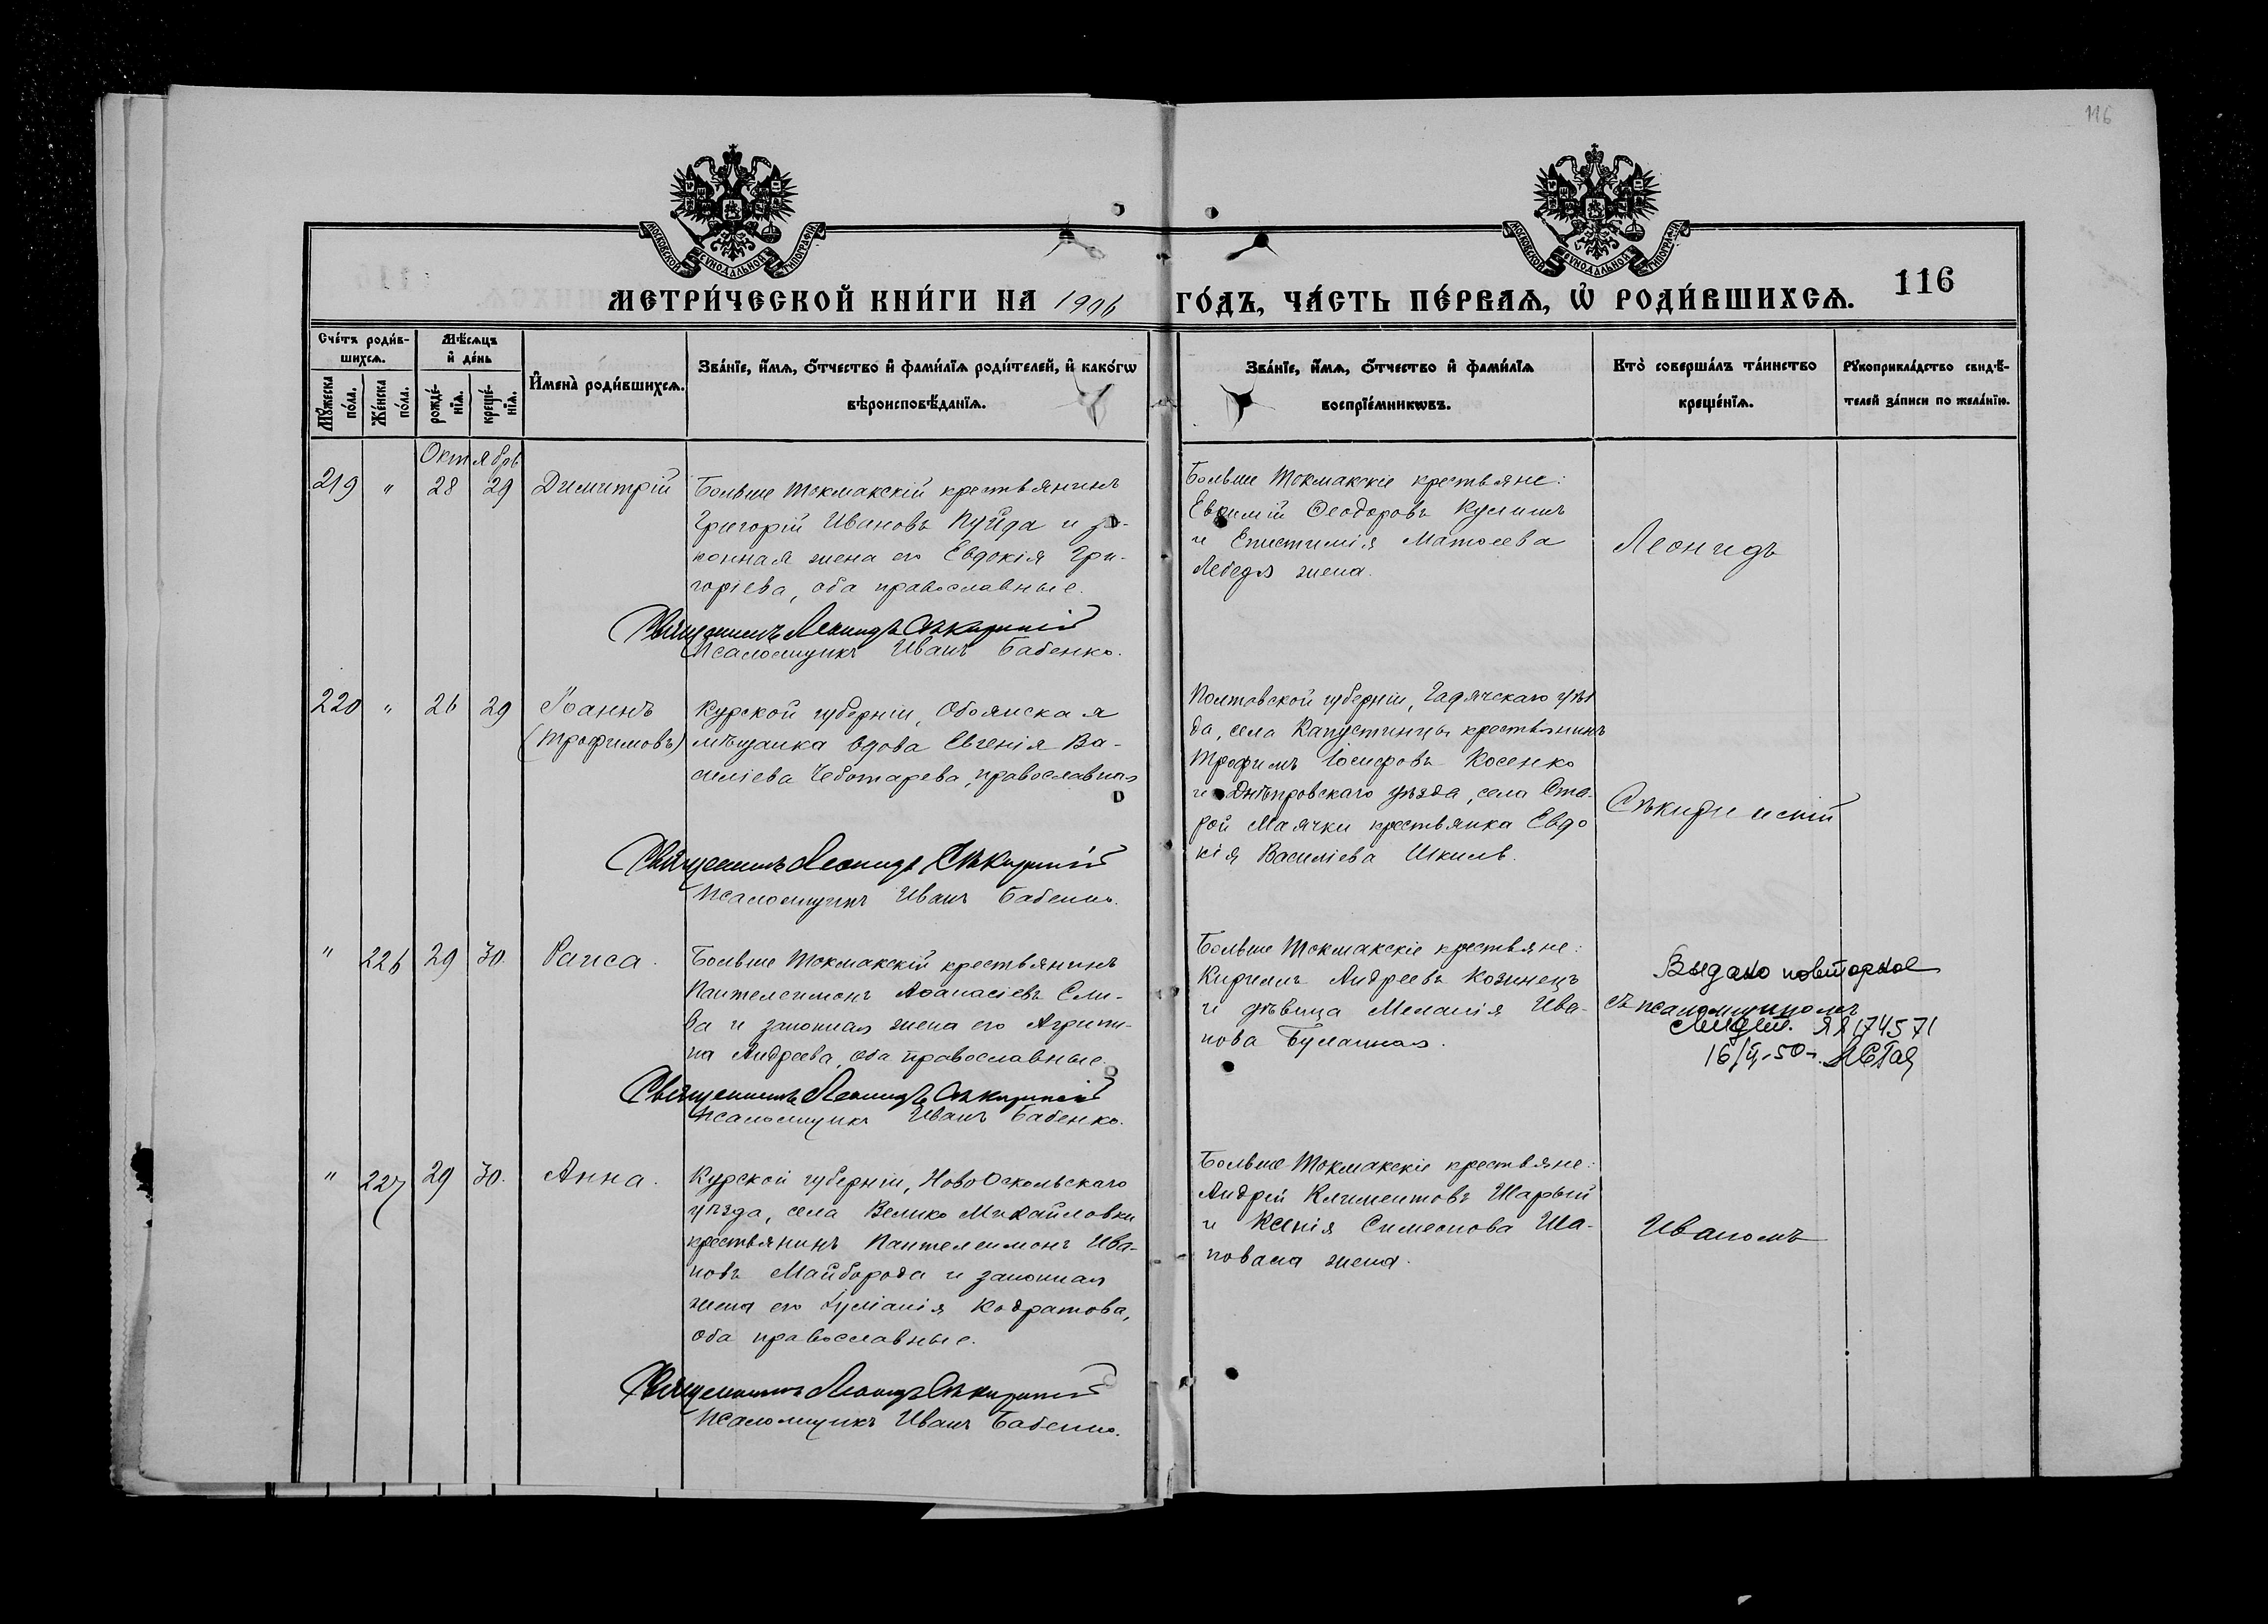 116
МОСКОВСКОЙ СѴНОДАЛЬНОЙ ТИПОГРАФІИ
МОСКОВСКОЙ СѴНОДАЛЬНОЙ ТИПОГРАФІИ
МЕТРИ́ЧЕСКОЙ КНИ́ГИ НА 1906 ГО́ДЪ, ЧА́СТЬ ПЕ́РВАѦ, Ѡ҆ РОДИ́ВШИХСѦ. 116
Сче́тъ роди́в-
шихсѧ.
Мꙋ́жеска по́ла.
Же́нска по́ла.
Мѣ́сѧцъ
и҆ де́нь
рожде́-
нїѧ.
креще́-
нїѧ.
И҆мена̀ роди́вшихсѧ.
Зва́нїе, и҆́мѧ, ѻ҆́тчество и҆ фами́лїѧ роди́телей, и҆ како́гѡ
вѣроисповѣ́данїѧ.
Зва́нїе, и҆́мѧ, ѻ҆́тчество и҆ фами́лїѧ
воспрїе́мникѡвъ.
Кто̀ соверша́лъ та́инство
креще́нїѧ.
Рꙋкоприкла́дство свидѣ́-
телей за́писи по жела́нїю.
Октябрь
219 " 28 29 Димитрій
Больше Токмакскій крестьянинъ
Григорій Ивановъ Пуйда и за-
конная жена его Евдокія Гри-
горіева, оба православные.
Священникъ Леонидъ Сѣкиринскій
Псаломщикъ Иванъ Бабенко.
Больше Токмакскіе крестьяне:
Евфимій Ѳеодоровъ Кулишъ
и Епистимія Матѳеева
Лебедя жена.
Леонидъ
220 " 26 29 Іоаннъ
(Трофимовъ)
Курской губерніи, Обоянская
мѣщанка вдова Евгенія Ва-
силіева Чеботарева, православная
Священникъ Леонидъ Сѣкиринскій
Псаломщикъ Иванъ Бабенко.
Полтавской губерніи, Гадячскаго уѣз
да, села Капустинцы крестьянинъ
Трофимъ Іосифовъ Косенко
и Днѣпровскаго уѣзда, села Ста-
рой Маячки крестьянка Евдо
кія Василіева Шкиль.
Сѣкиринскій
" 226 29 30. Раиса.
Больше Токмакскій крестьянинъ
Пантелеимонъ Аѳанасіевъ Сли-
ва и законная жена его Агрипи-
на Андреева, оба православные.
Священникъ Леонидъ Сѣкиринскій
Псаломщикъ Иванъ Бабенко.
Больше Токмакскіе крестьяне:
Кириллъ Андреевъ Козинецъ
и дѣвица Меланія Ива-
нова Булашная.
Выдано повторное
съ псаломщикомъ
174571
" 227 29 30. Анна.
Курской губерніи, НовоОскольскаго
уѣзда, села Велико Михайловки
крестьянинъ Пантелеимонъ Ива-
новъ Майборода и законная
жена его Іуліанія Кодратова,
оба православные.
Священникъ Леонидъ Сѣкиринскій
Псаломщикъ Иванъ Бабенко.
Больше-Токмакскіе крестьяне:
Андрей Климентовъ Шарый
и Ксенія Симеонова Ша-
повала жена.
Иваномъ